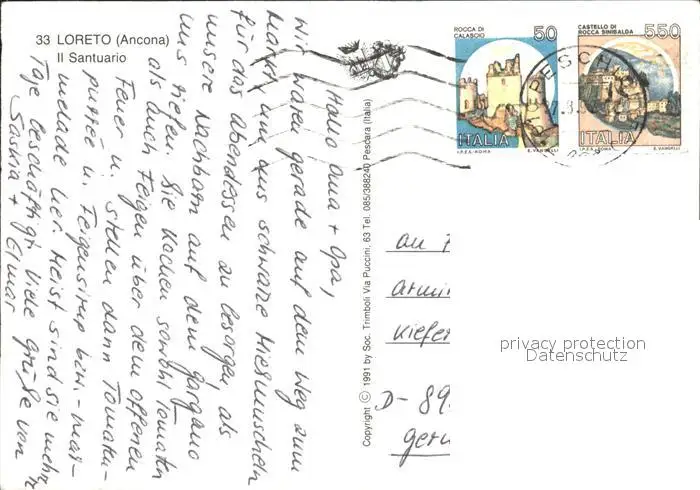 33 LORETO (Ancona)
Il Santuario
ROCCA DI
CALASCIO
50
ITALIA
I.P.Z.S.-ROMA E. VANGELLI
CASTELLO DI
ROCCA SINIBALDA
550
ITALIA
I.P.Z.S.-ROMA E. VANGELLI
PESCH
Hallo Oma + Opa,
wir waren gerade auf dem Weg zum
Markt um uns schwarze Miesmuscheln
für das Abendessen zu besorgen, als
unsere Nachbarn auf dem Gargano
uns riefen. Sie kochen sowohl Tomaten
als auch Feigen über dem offenen
Feuer u. stellen dann Tomaten-
püree u. Feigensirup bzw. -mar-
melade her. Meist sind sie mehr
Tage beschäftigt. Viele Grüße von
Saskia + Elmar
Copyright © 1991 by Soc. Trimboli Via Puccini, 63 Tel. 085/388240 Pescara (Italia)
An
Armin
Kiefer
D- 89
Germ
privacy protection
Datenschutz